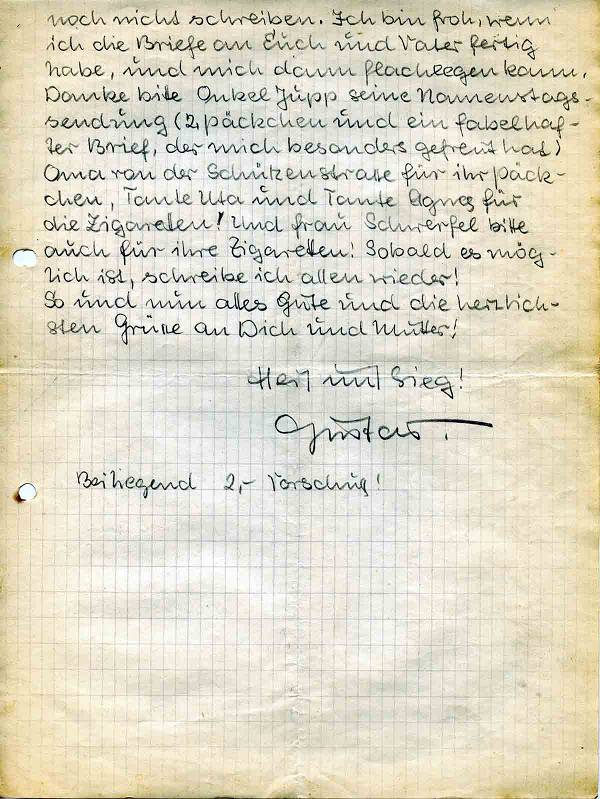 noch nicht schreiben. Ich bin froh, wenn
ich die Briefe an Euch und Vater fertig
habe, und mich dann flachlegen kann.
Danke bitte Onkel Jupp seine Namenstags-
sendung (2 päckchen und ein fabelhaf-
ter Brief, der mich besonders gefreut hat)
Oma von der Schützenstraße für ihr päck-
chen, Tante Uta und Tante Agnes für
die Zigaretten! Und frau Scherfel bitte
auch für ihre Zigaretten! Sobald es mög-
lich ist, schreibe ich allen wieder!
So und nun alles Gute und die herzlich-
sten Grüße an Dich und Mutter!
Heil und Sieg!
Gustav.
Beiliegend 2,- Vorschuß!